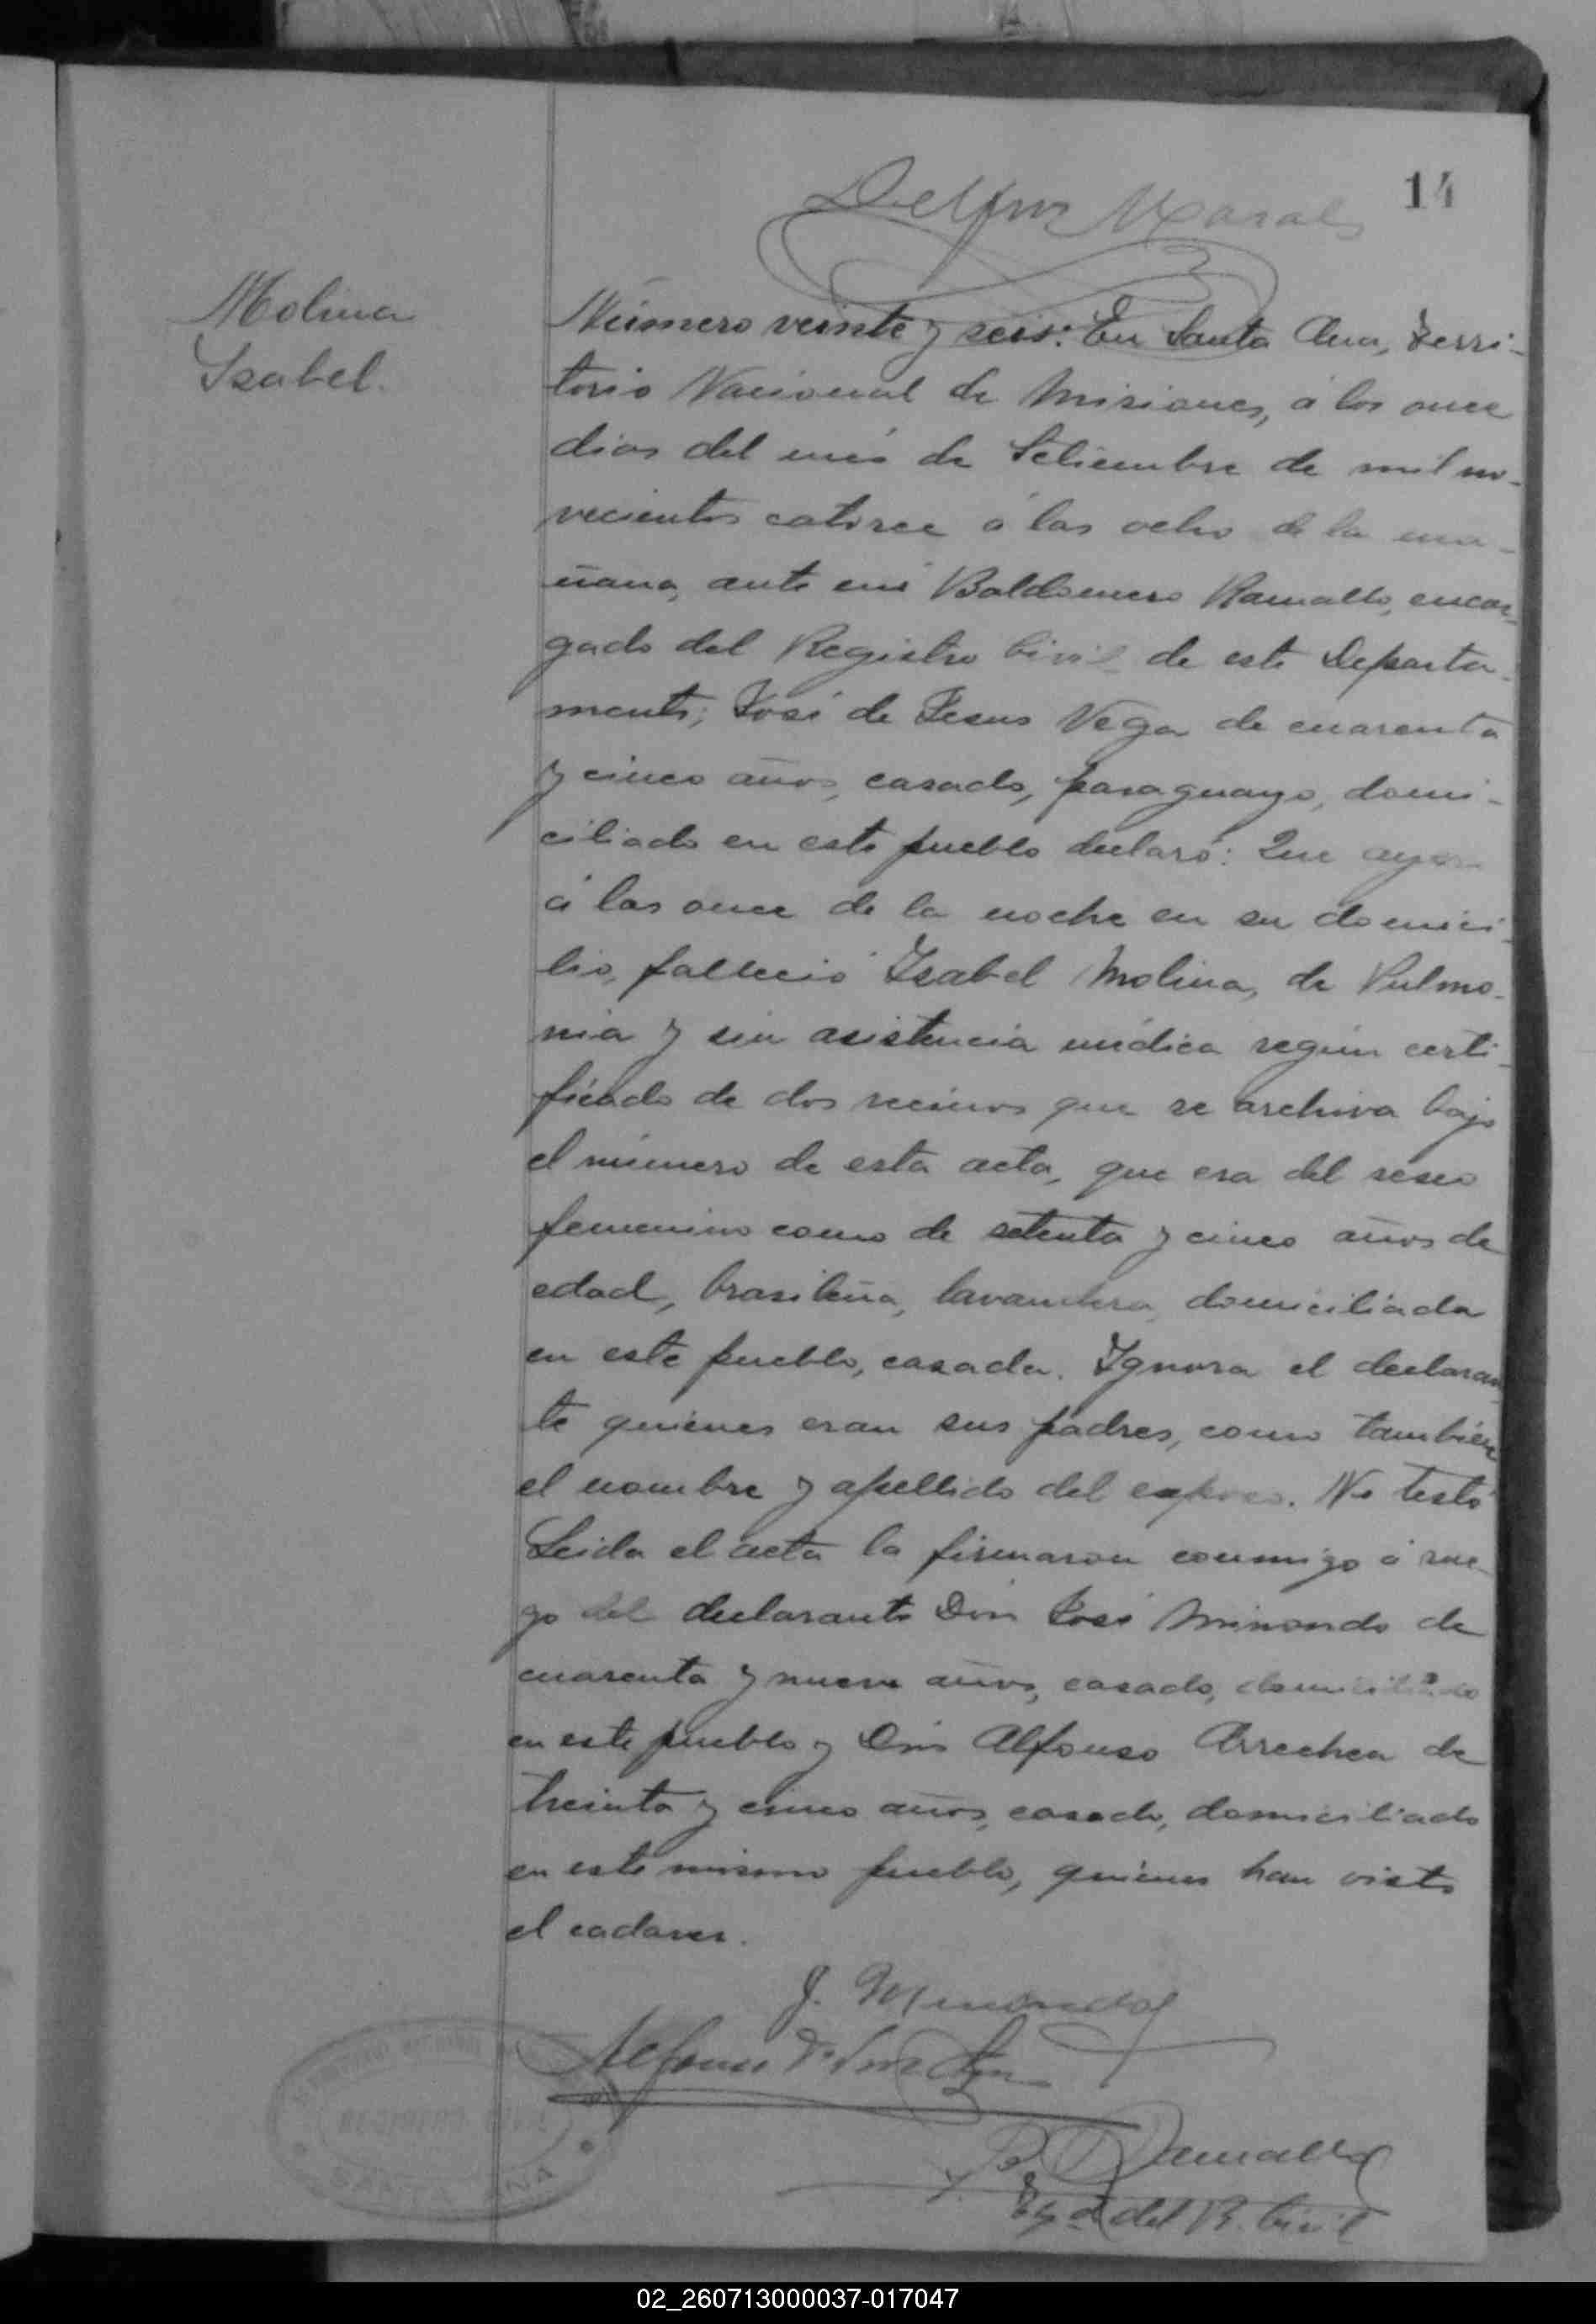 14
Molina
Isabel.
Número veinte y seis: En Santa Ana, Terri-
torio Nacional de Misiones, á los once
dias del més de Setiembre de mil no-
vecientos catorce á las ocho de la ma-
ñana, ante mi Baldomero Ramallo, encar-
gado del Registro Civil de este Departa-
mento; José de Jesus Vega de cuarenta
y cinco años, casado, paraguayo, domi-
ciliado en este pueblo declaró: Que ayer
á las once de la noche en su domici-
lio, falleció Isabel Molina, de Pulmo-
nia y sin asistencia médica según certi-
ficado de dos vecinos que se archiva bajo
el número de esta acta, que era del sexo
femenino como de setenta y cinco años de
edad, brasileña, lavandera, domiciliada
en este pueblo, casada. Ignora el declaran-
te quienes eran sus padres, como también
el nombre y apellido del esposo. No testó
Leida el acta la firmaron conmigo á rue-
go del declarante Don José Minondo de
cuarenta y nueve años, casado, domiciliado
en este pueblo y Don Alfonso Arrechea de
treinta y cinco años, casado, domiciliado
en este mismo pueblo, quienes han visto
el cadaver.
J. Minondo
Alfonso
B. Ramallo
Egdo del R. Civil
SANTA ANA
02_260713000037-017047